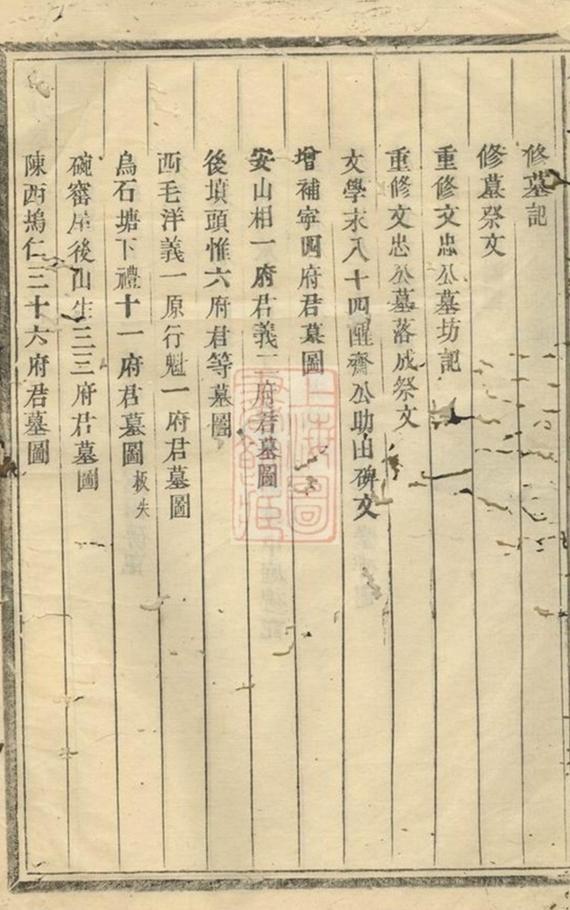 修墓記
修墓祭文
重修文忠公墓坊記
重修文忠公墓落成祭文
文學末八十四醒齋公助田碑文
增補寧四府君墓圖
安山相一府君義二府君墓圖
後墳頭惟六府君等墓圖
西毛洋義一原行魁一府君墓圖
烏石塘下禮十一府君墓圖板失
碗窰後山生三三府君墓圖
陳西塢仁三十六府君墓圖